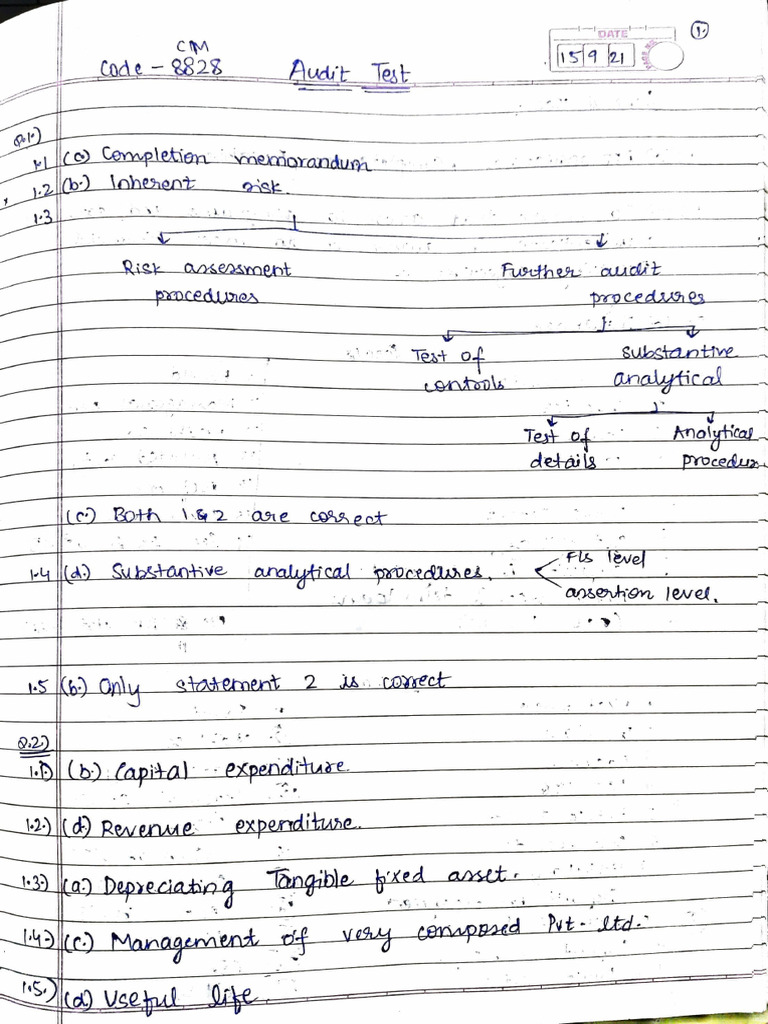 CM
Code - 8828 Audit Test
DATE
15 9 21
1.
Q.1.)
1.1 (a) Completion memorandum
1.2 (b.) Inherent risk.
1.3
Risk assessment Further audit
procedures procedures
Test of substantive
controls analytical
Test of Analytical
details procedure
(c.) Both 1 & 2 are correct
1.4 (d.) Substantive analytical procedures. : F/s level
assertion level.
1.5 (b.) Only statement 2 is correct
Q.2.)
1.1) (b.) Capital expenditure.
1.2.) (d.) Revenue expenditure.
1.3.) (a.) Depreciating Tangible fixed asset.
1.4.) (c.) Management of very composed Pvt. ltd.
1.5.) (d) Useful life.